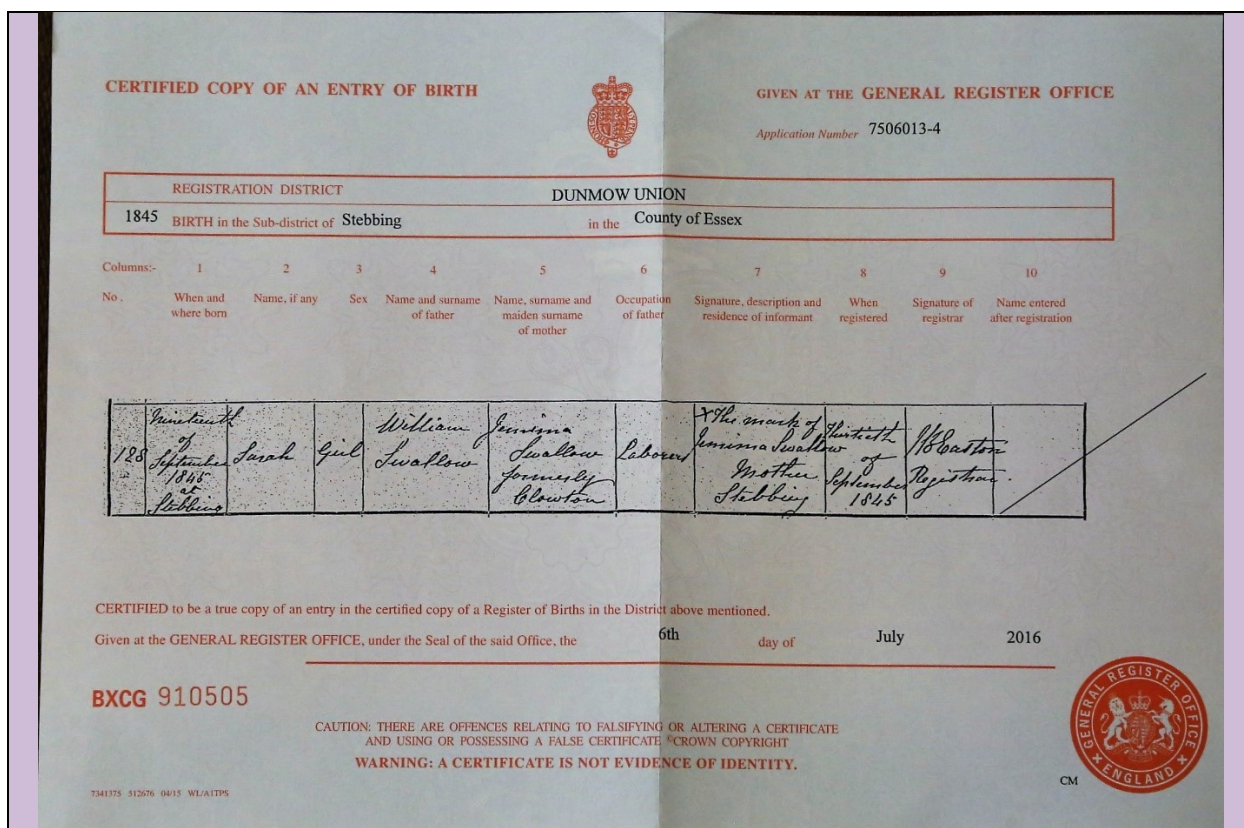 CERTIFIED COPY OF AN ENTRY OF BIRTH
GIVEN AT THE GENERAL REGISTER OFFICE
Application Number 7506013-4
REGISTRATION DISTRICT DUNMOW UNION
1845 BIRTH in the Sub-district of Stebbing in the County of Essex
Columns:- 1 2 3 4 5 6 7 8 9 10
No. When and where born Name, if any Sex Name and surname of father Name, surname and maiden surname of mother Occupation of father Signature, description and residence of informant When registered Signature of registrar Name entered after registration
128
Nineteenth
of
September
1845
at
Stebbing
Sarah
Girl
William
Swallow
Jemima
Swallow
formerly
Clowton
Laborer
X The mark of
Jemima Swallow
Mother
Stebbing
Thirtieth
of
September
1845
Easton
Registrar.
CERTIFIED to be a true copy of an entry in the certified copy of a Register of Births in the District above mentioned.
Given at the GENERAL REGISTER OFFICE, under the Seal of the said Office, the 6th day of July 2016
BXCG 910505
CAUTION: THERE ARE OFFENCES RELATING TO FALSIFYING OR ALTERING A CERTIFICATE
AND USING OR POSSESSING A FALSE CERTIFICATE ©CROWN COPYRIGHT
WARNING: A CERTIFICATE IS NOT EVIDENCE OF IDENTITY.
GENERAL REGISTER OFFICE
ENGLAND
CM
7341375 512676 04/15 WL/A1TPS